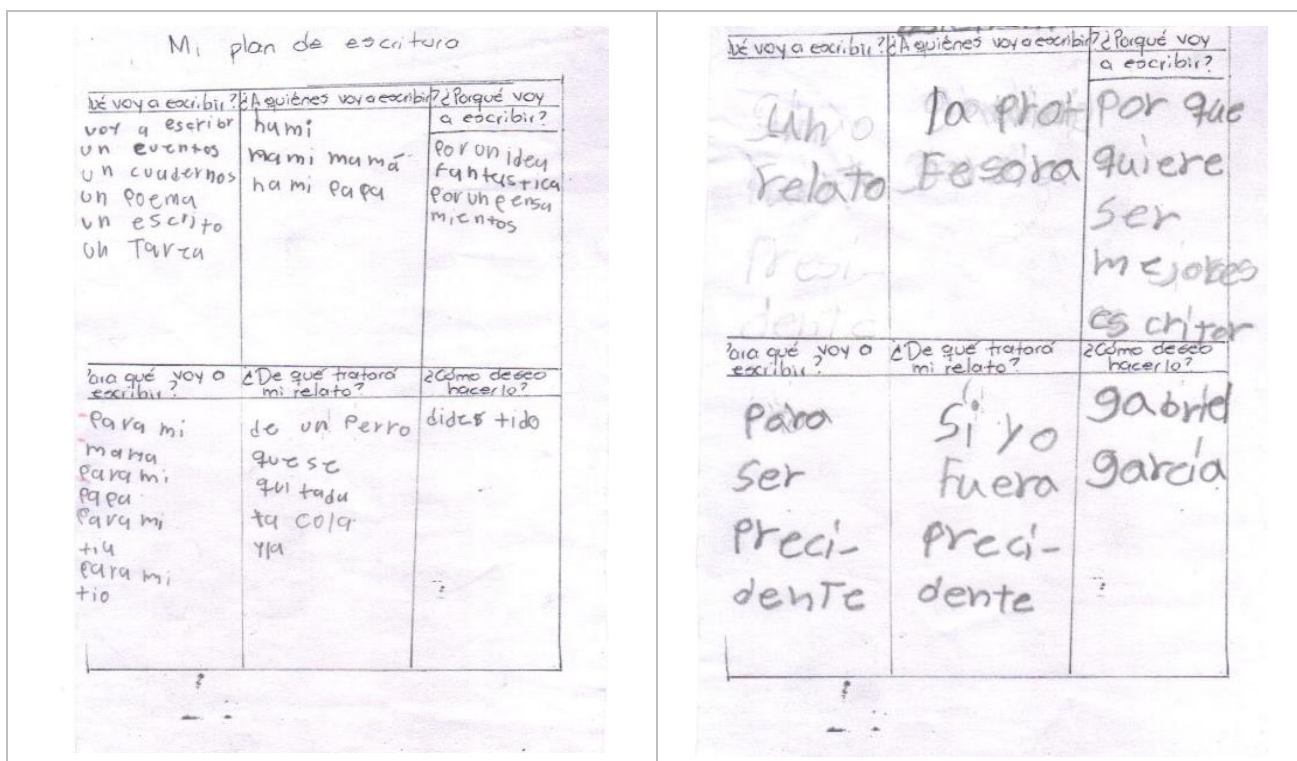 Mi plan de escritura
ué voy a escribir?
¿A quiénes voy a escribir?
¿Porqué voy
a escribir?
voy a escribir
un eventos
un cuadernos
un poema
un escrito
un Tarea
hami
mami mumá
hami papa
Por un idea
fantastica
Por un pensa
mientos
ara qué voy a
escribir?
¿De qué tratará
mi relato?
¿Cómo deseo
hacerlo?
Para mi
mama
para mi
papa
Para mi
tia
para mi
tio
de un perro
que se
quitada
ta cola
y la
ué voy a escribir?
¿A quiénes voy a escribir?
¿Porqué voy
a escribir?
un
relato
Presi-
dente
la prof
Fesora
Por que
quiere
ser
mejores
escritor
ara qué voy a
escribir?
¿De qué tratará
mi relato?
¿Cómo deseo
hacerlo?
Para
ser
Preci-
denTe
Si yo
Fuera
Preci-
dente
gabriel
garcía